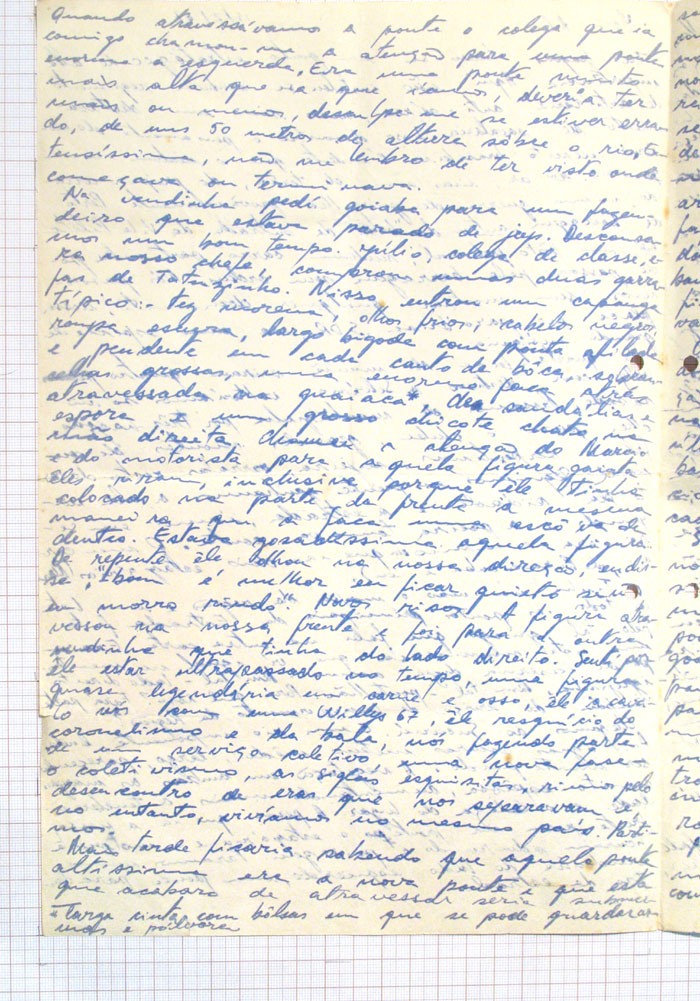 Quando atravessávamos a ponte o colega que ia
comigo chamou-me a atenção para uma ponte
enorme a esquerda. Era uma ponte muito
mais alta que a que íamos, devera ter
mais ou menos, desculpe-me se estiver erran
do, de uns 50 metros de altura sôbre o rio, ex
tensíssima, não me lembro de ter visto onde
começava ou terminava.
Na vendinha pedí goiaba para um fazen-
deiro que estava parado de jeep. Descansa
mos um bom tempo. Júlio, colega de classe, e
ra nosso chefe, compraram umas duas garra
fas de Tatuzinho. Nisso, entrou um capanga
típico:- tez morena, olhos frios, cabelos negros
roupa escura, largo bigode com ponta afilada
e pendente em cada canto de bôca, sobran
celhas grossas, uma enorme faca atrás
atravessada na guaiaca*, de sandálias e
espora e um grosso chicote chato na
mão direita. Chamei a atenção do Marcio
e do motorista para aquela figura gaiata
eles riram, inclusive porque êle tinha
colocado na parte da frente a mesma
maneira que a faca uma escôva de
dentro. Estava gosadíssima aquela figura.
De repente êle olhou na nossa direção, eu dis-
se, "bom é melhor eu ficar quieto sinão
eu morro rindo". Novos risos. A figura atra
vessou na nossa frente e foi para a outra
vendinha que tinha do lado direito. Senti por
êle estar ultrapassado no tempo, uma figura
quase legendária em carne e osso, êle a cava
lo nós com uma Willys 67, êle resquício do
coronelismo e da bala, nós fazendo parte
de um serviço coletivo, uma nova fase-
o coletivismo, as siglas esquisitas, rimos pelo
desencontro de eras que nos separavam e
no entanto, vivíamos no mesmo país. Parti-
mos.
Mais tarde ficaria sabendo que aquela ponte
altíssima era a nova ponte e que esta
que acabara de atravessar seria
*Larga cinta com bôlsas em que se pode guardar ar
mas e pólvora